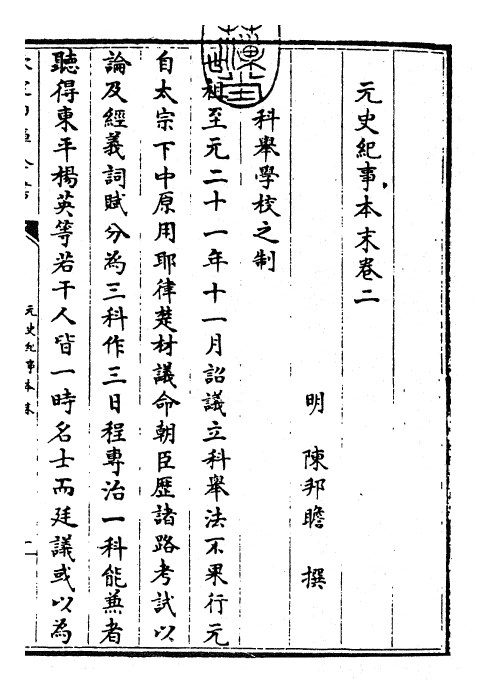 元史紀事本末卷二
明 陳邦瞻 撰
科舉學校之制
世祖至元二十一年十一月詔議立科舉法不果行元
自太宗下中原用耶律楚材議命朝臣歷諸路考試以
論及經義詞賦分為三科作三日程專治一科能兼者
聽得東平楊英等若干人皆一時名士而廷議或以為
元史紀事本末